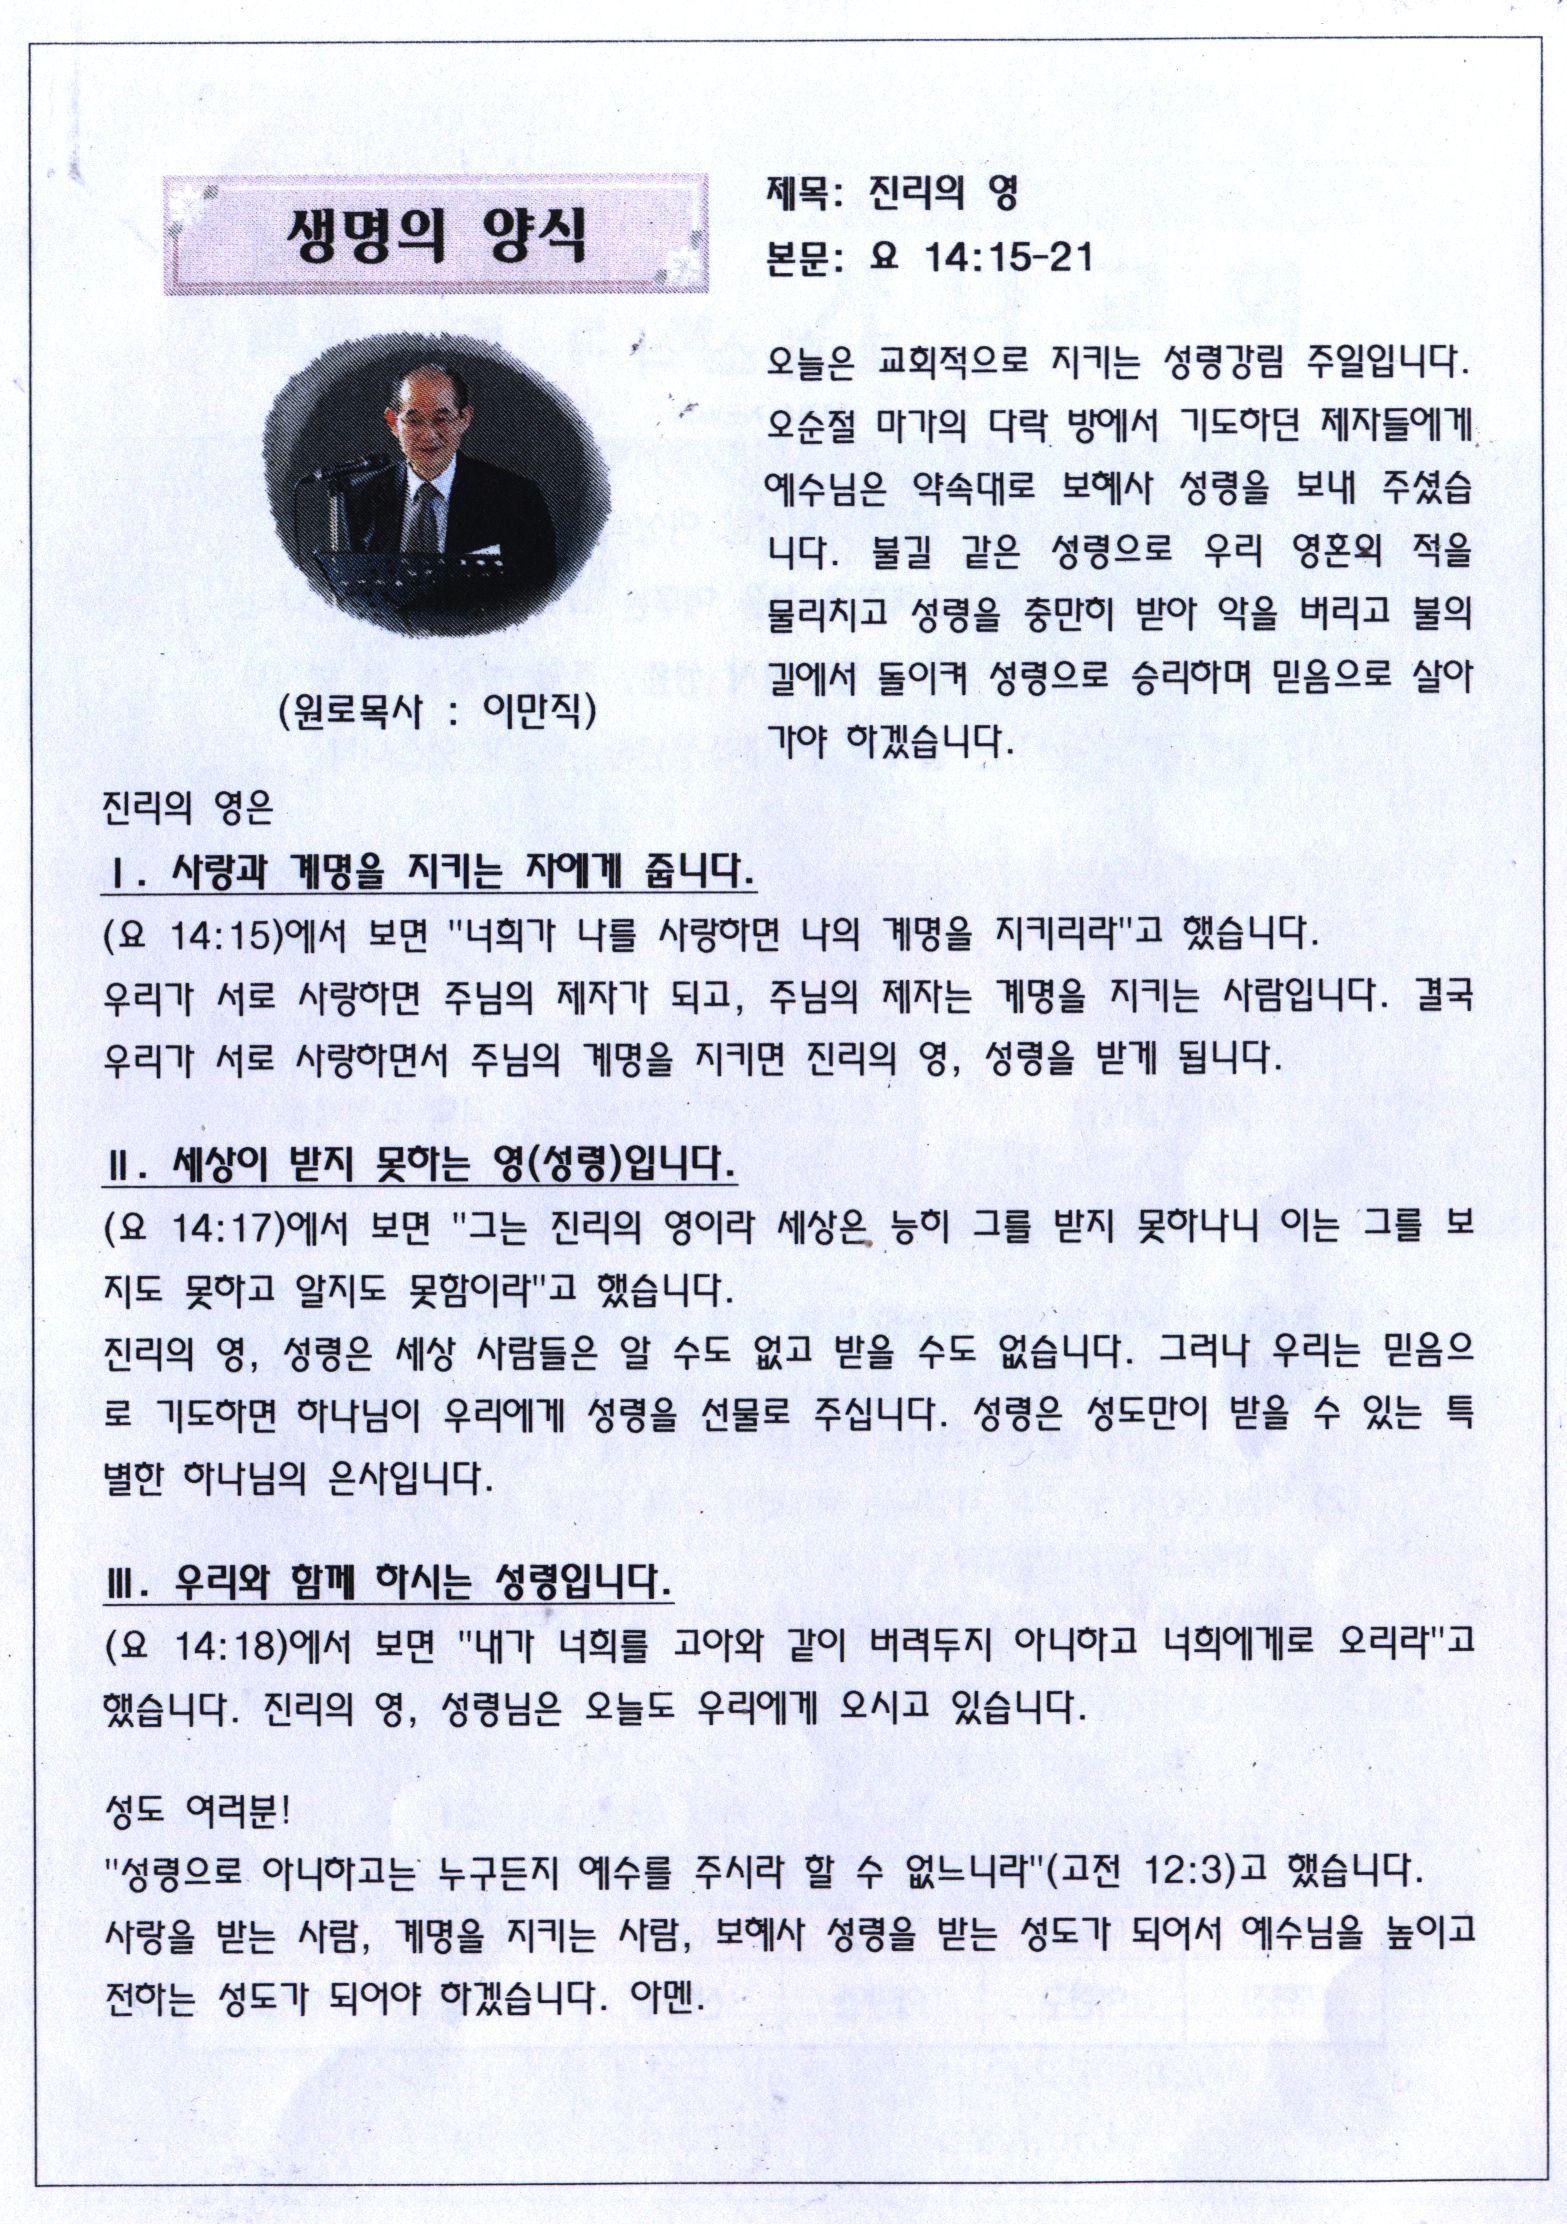 생명의 양식
(원로목사 : 이만직)
제목: 진리의 영
본문: 요 14:15-21
오늘은 교회적으로 지키는 성령강림 주일입니다.
오순절 마가의 다락 방에서 기도하던 제자들에게
예수님은 약속대로 보혜사 성령을 보내 주셨습
니다. 불길 같은 성령으로 우리 영혼의 적을
물리치고 성령을 충만히 받아 악을 버리고 불의
길에서 돌이켜 성령으로 승리하며 믿음으로 살아
가야 하겠습니다.
진리의 영은
Ⅰ. 사랑과 계명을 지키는 자에게 줍니다.
(요 14:15)에서 보면 "너희가 나를 사랑하면 나의 계명을 지키리라"고 했습니다.
우리가 서로 사랑하면 주님의 제자가 되고, 주님의 제자는 계명을 지키는 사람입니다. 결국
우리가 서로 사랑하면서 주님의 계명을 지키면 진리의 영, 성령을 받게 됩니다.
Ⅱ. 세상이 받지 못하는 영(성령)입니다.
(요 14:17)에서 보면 "그는 진리의 영이라 세상은 능히 그를 받지 못하나니 이는 그를 보
지도 못하고 알지도 못함이라"고 했습니다.
진리의 영, 성령은 세상 사람들은 알 수도 없고 받을 수도 없습니다. 그러나 우리는 믿음으
로 기도하면 하나님이 우리에게 성령을 선물로 주십니다. 성령은 성도만이 받을 수 있는 특
별한 하나님의 은사입니다.
Ⅲ. 우리와 함께 하시는 성령입니다.
(요 14:18)에서 보면 "내가 너희를 고아와 같이 버려두지 아니하고 너희에게로 오리라"고
했습니다. 진리의 영, 성령님은 오늘도 우리에게 오시고 있습니다.
성도 여러분!
"성령으로 아니하고는 누구든지 예수를 주시라 할 수 없느니라"(고전 12:3)고 했습니다.
사랑을 받는 사람, 계명을 지키는 사람, 보혜사 성령을 받는 성도가 되어서 예수님을 높이고
전하는 성도가 되어야 하겠습니다. 아멘.